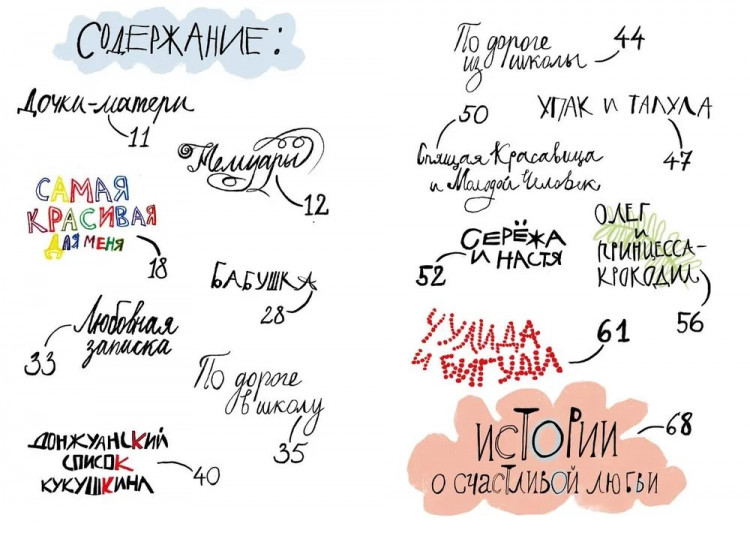 СОДЕРЖАНИЕ:
Дочки-матери
11
Мемуары
12
САМАЯ
КРАСИВАЯ
ДЛЯ МЕНЯ
18
БАБУШКА
28
Любовная
записка
33
По дороге
в школу
35
ДОНЖУАНСКИЙ
СПИСОК
КУКУШКИНА
40
По дороге
из школы
44
УПАК И ТАЛУЛА
47
50
Спящая Красавица
и Молодой Человек
СЕРЁЖА
И НАСТЯ
52
ОЛЕГ
И
ПРИНЦЕССА-
КРОКОДИЛ
56
ЧУЛИДА
И БИГУДИ
61
ИСТОРИИ
О СЧАСТЛИВОЙ ЛЮБВИ
68